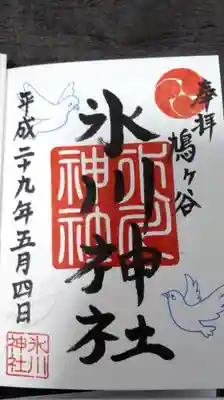 奉拝
鳩ヶ谷
氷川神社
氷川神社
平成二十九年五月四日
氷川神社